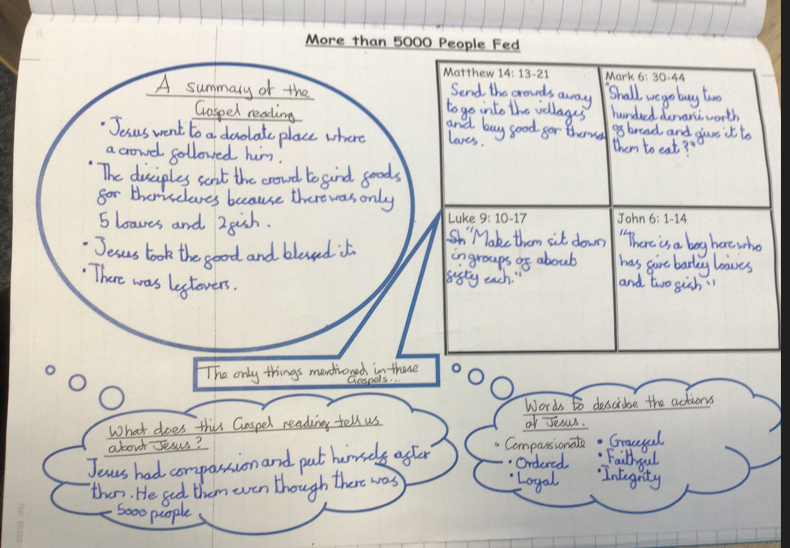 More than 5000 People Fed
A summary of the
Gospel reading
• Jesus went to a desolate place where
a crowd followed him.
• The disciples sent the crowd to find foods
for themscleves because there was only
5 loaves and 2 fish.
• Jesus took the food and blessed it.
• There was leftovers.
Matthew 14: 13-21
Send the crowds away
to go into the villages
and buy food for themse
lves.
Mark 6: 30-44
"Shall we go buy two
hundred denarii worth
of bread and give it to
them to eat?"
Luke 9: 10-17
"Make them sit down
in groups of about
fifty each."
John 6: 1-14
"There is a boy here who
has five barley loaves
and two fish"
The only things mentioned in these
Gospels...
What does this Gospel reading tell us
about Jesus?
Jesus had compassion and put himself after
them. He fed them even though there was
5000 people
Words to describe the actions
of Jesus.
• Compassionate
• Ordered
• Loyal
• Graceful
• Faithful
• Integrity